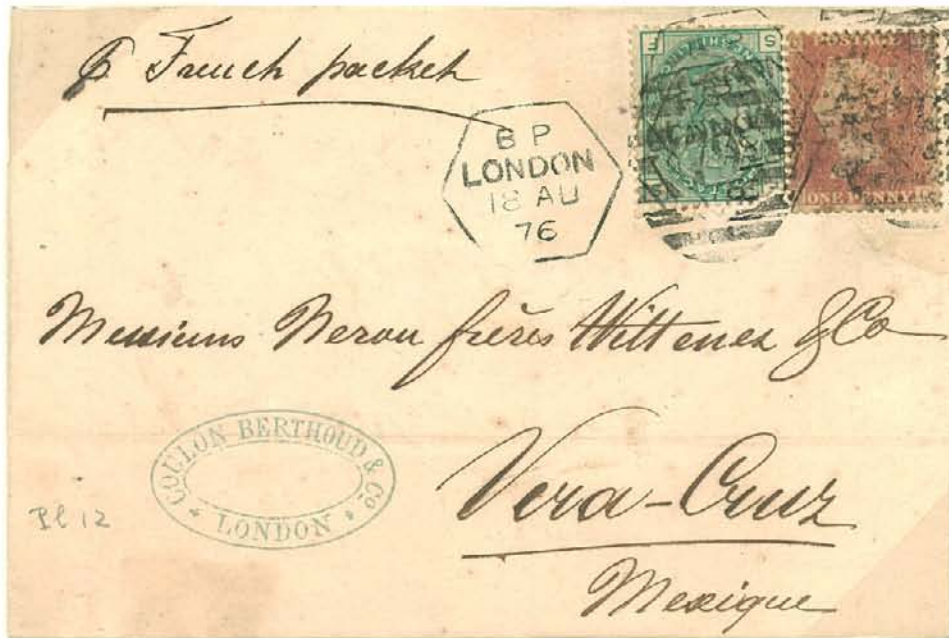 French packet
B P
LONDON
18 AU
76
ONE PENNY
frères Wittenez & Co
COULON BERTHOUD & Co
LONDON
Pl 12
Vera-Cruz
Mexique